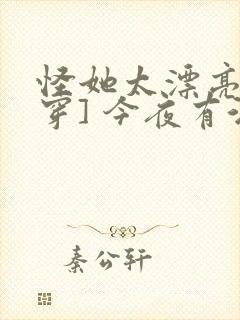 怪她太漂亮
穿]今夜有
秦公轩